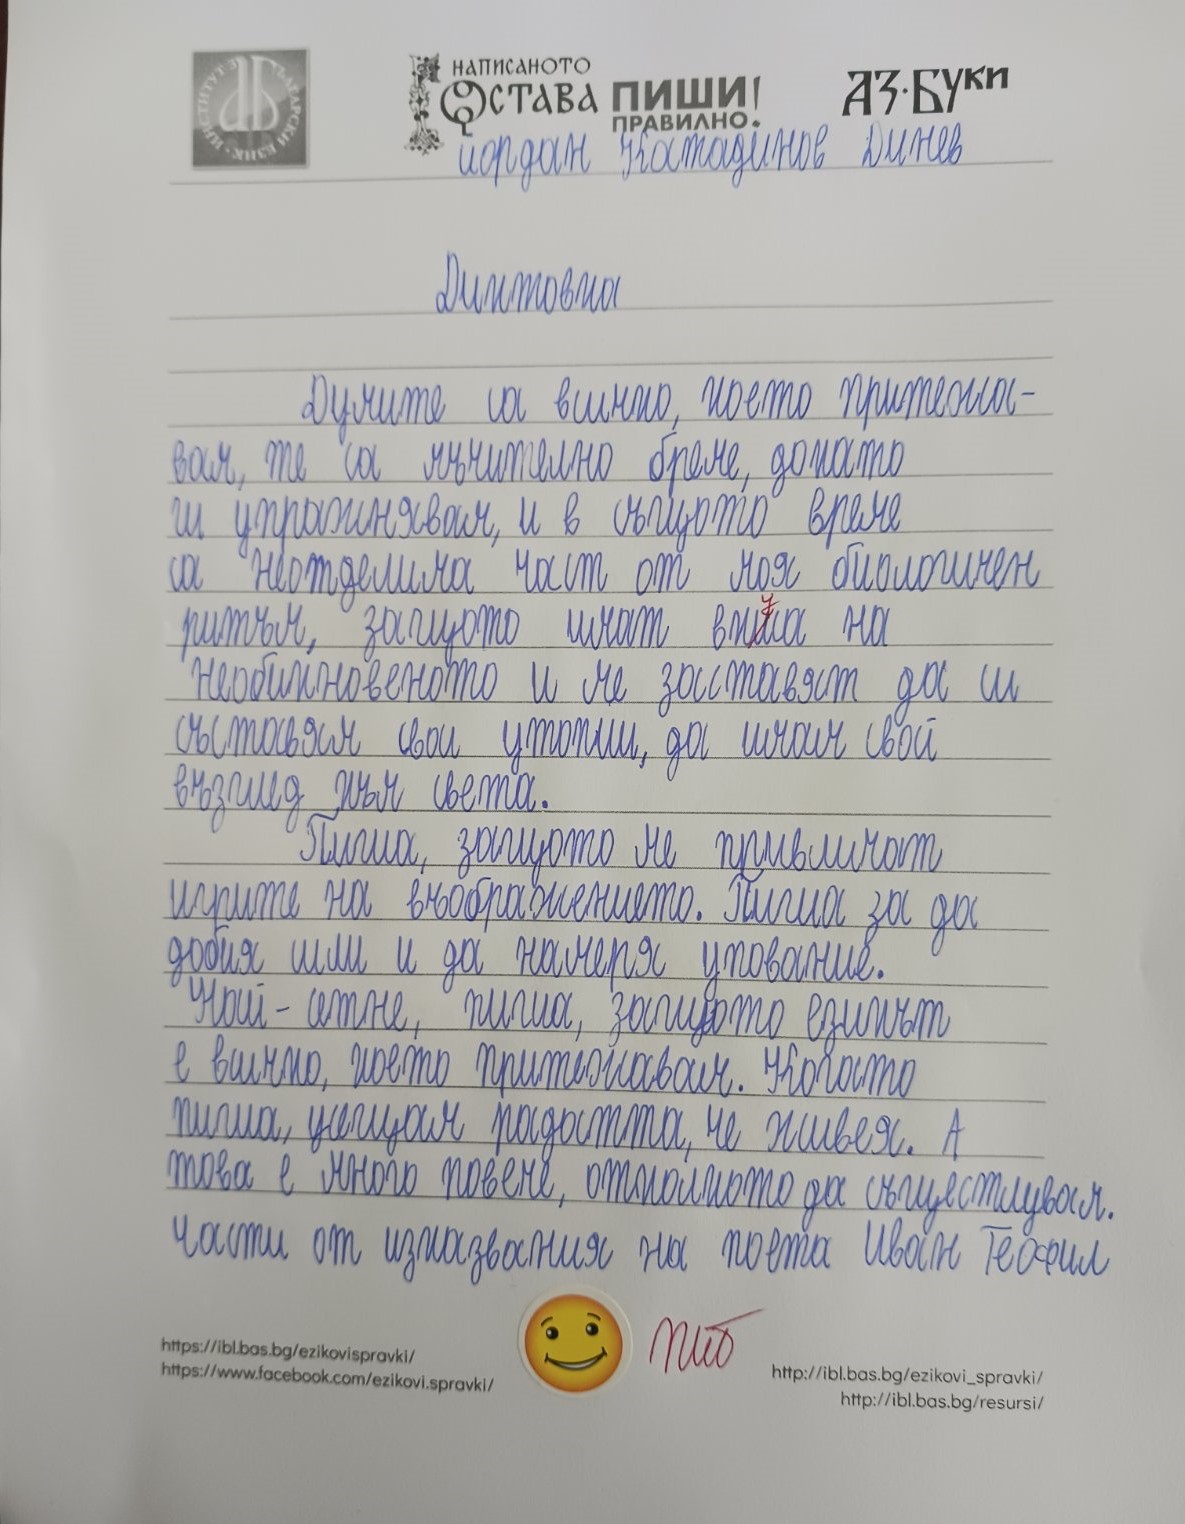 ИНСТИТУТ ЗА БЪЛГАРСКИ ЕЗИК
НАПИСАНОТО
ОСТАВА ПИШИ!
ПРАВИЛНО.
АЗ·БУКИ
Йордан Костадинов Динев
Диктовка
Думите са всичко, което притежа-
вам, те са мъчително бреме, докато
ги упражнявам, и в същото време
са неотделима част от моя биологичен
ритъм, защото имат вкуса на
необикновеното и ме заставят да си
съставям свои утопии, да имам свой
възглед към света.
Пиша, защото ме привличат
игрите на въображението. Пиша за да
добия сили и да намеря упование.
Най-сетне, пиша, защото езикът
е всичко, което притежавам. Когато
пиша, усещам радостта, че живея. А
това е много повече, отколкото да съществувам.
Части от изказвания на поета Иван Теофил
https://ibl.bas.bg/ezikovispravki/
https://www.facebook.com/ezikovi.spravki/
http://ibl.bas.bg/ezikovi_spravki/
http://ibl.bas.bg/resursi/